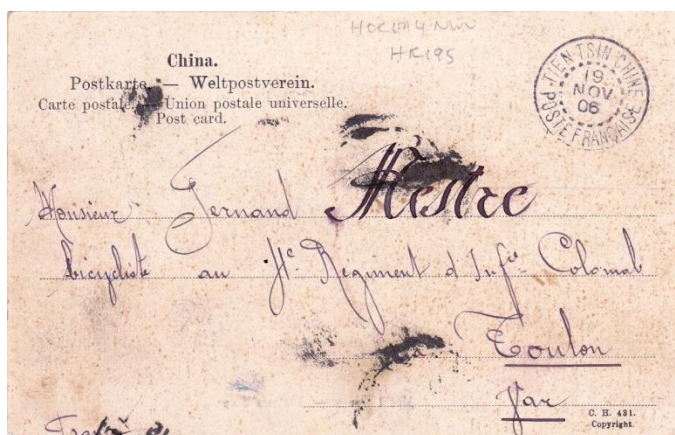 HR195
China.
Postkarte. — Weltpostverein.
Carte postale. — Union postale universelle.
Post card.
TIEN-TSIN-CHINE
19
NOV
06
POSTE FRANÇAISE
Monsieur Fernand Mestre
bicycliste au Regiment d'Inf.ie Colonial
Toulon
Var
C. H. 431.
Copyright.